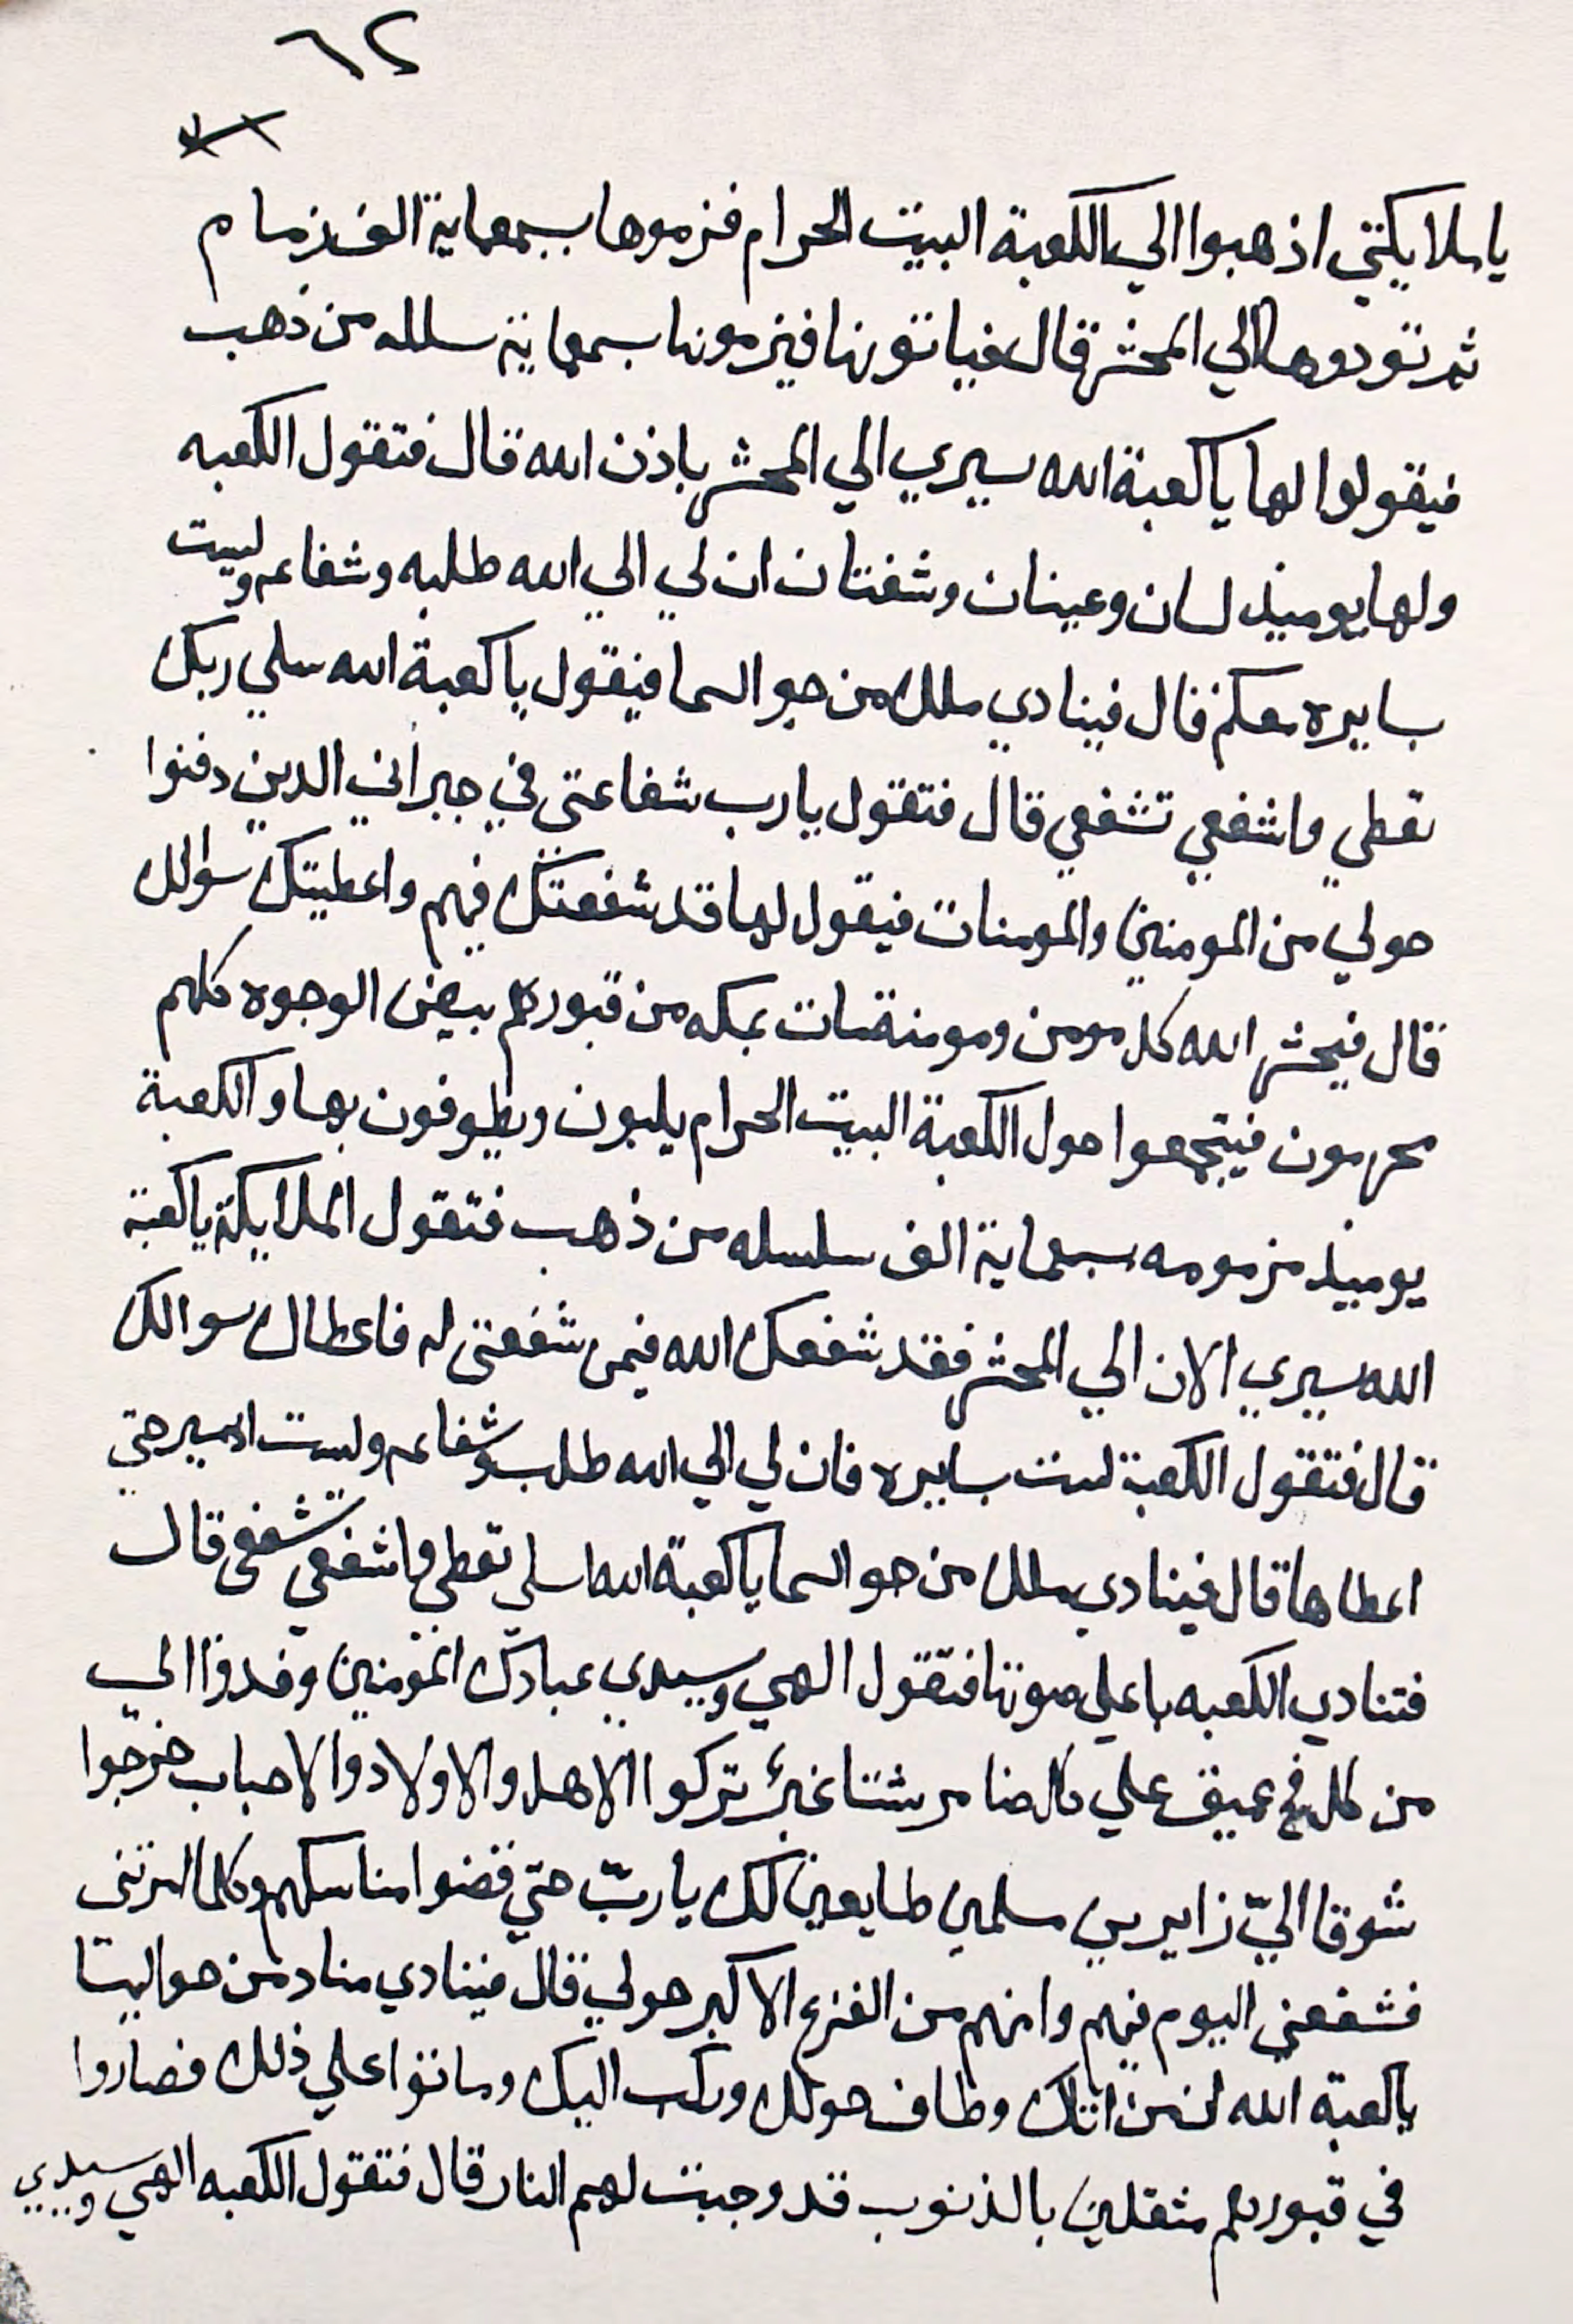 ٦٢
يا ملايكتي اذهبوا الي الكعبة البيت الحرام فزموها بسبعماية الف زمام
ثم تقودوها الي المحشر قال فياتونها فيزمونها بسبعماية سلسله من ذهب
فيقولوا لها ياكعبة الله سيري الي المحشر باذن الله قال فتقول الكعبه
ولها يوميذ لسان وعينان وشفتان ان لي الي الله طلبه وشفاعه وليست
بسايره معكم قال فينادي ملك من جو السما فيقول ياكعبة الله سلي ربك
تعطي واشفعي تشفعي قال فتقول يارب شفاعتي في جيراني الدين دفنوا
حولي من المومنين والمومنات فيقول لها قد شفعتك فيهم واعطيتك سوالك
قال فيحشر الله كل مومن ومومنة مات بمكه من قبورهم بيض الوجوه كلهم
محرمون فيتجمعوا حول الكعبة البيت الحرام يلبون ويطوفون بها والكعبة
يوميذ مزمومه بسبعماية الف سلسله من ذهب فتقول الملايكة ياكعبة
الله سيري الان الي المحشر فقد شفعك الله فيمن شفعتي له فاعطاك سوالك
قال فتقول الكعبة لست بسايره فان لي الي الله طلب وشفاعه ولست اسير حتي
اعطاها قال فينادي ملك من جو السما ياكعبة الله سلي تعطي واشفعي تشفعي قال
فتنادي الكعبه باعلي صوتها فتقول الهي وسيدي عبادك المومنين وفدوا الي
من كل فج عميق علي كل ضامر شتا غبر تركوا الاهل والاولاد والاحباب خرجوا
شوقا اليّ زايرين مسلمين طايعين لك يا ربّ حتي قضوا مناسكهم وكلما امرتني
فشفعني اليوم فيهم وامنهم من الفزع الاكبر حولي قال فينادي مناد من جو السما
ياكعبة الله لمن من اتاك وطاف حولك وركب اليك وماتوا علي ذلك فصاروا
في قبورهم مثقلين بالذنوب قد وجبت لهم النار قال فتقول الكعبه الهي وسيدي